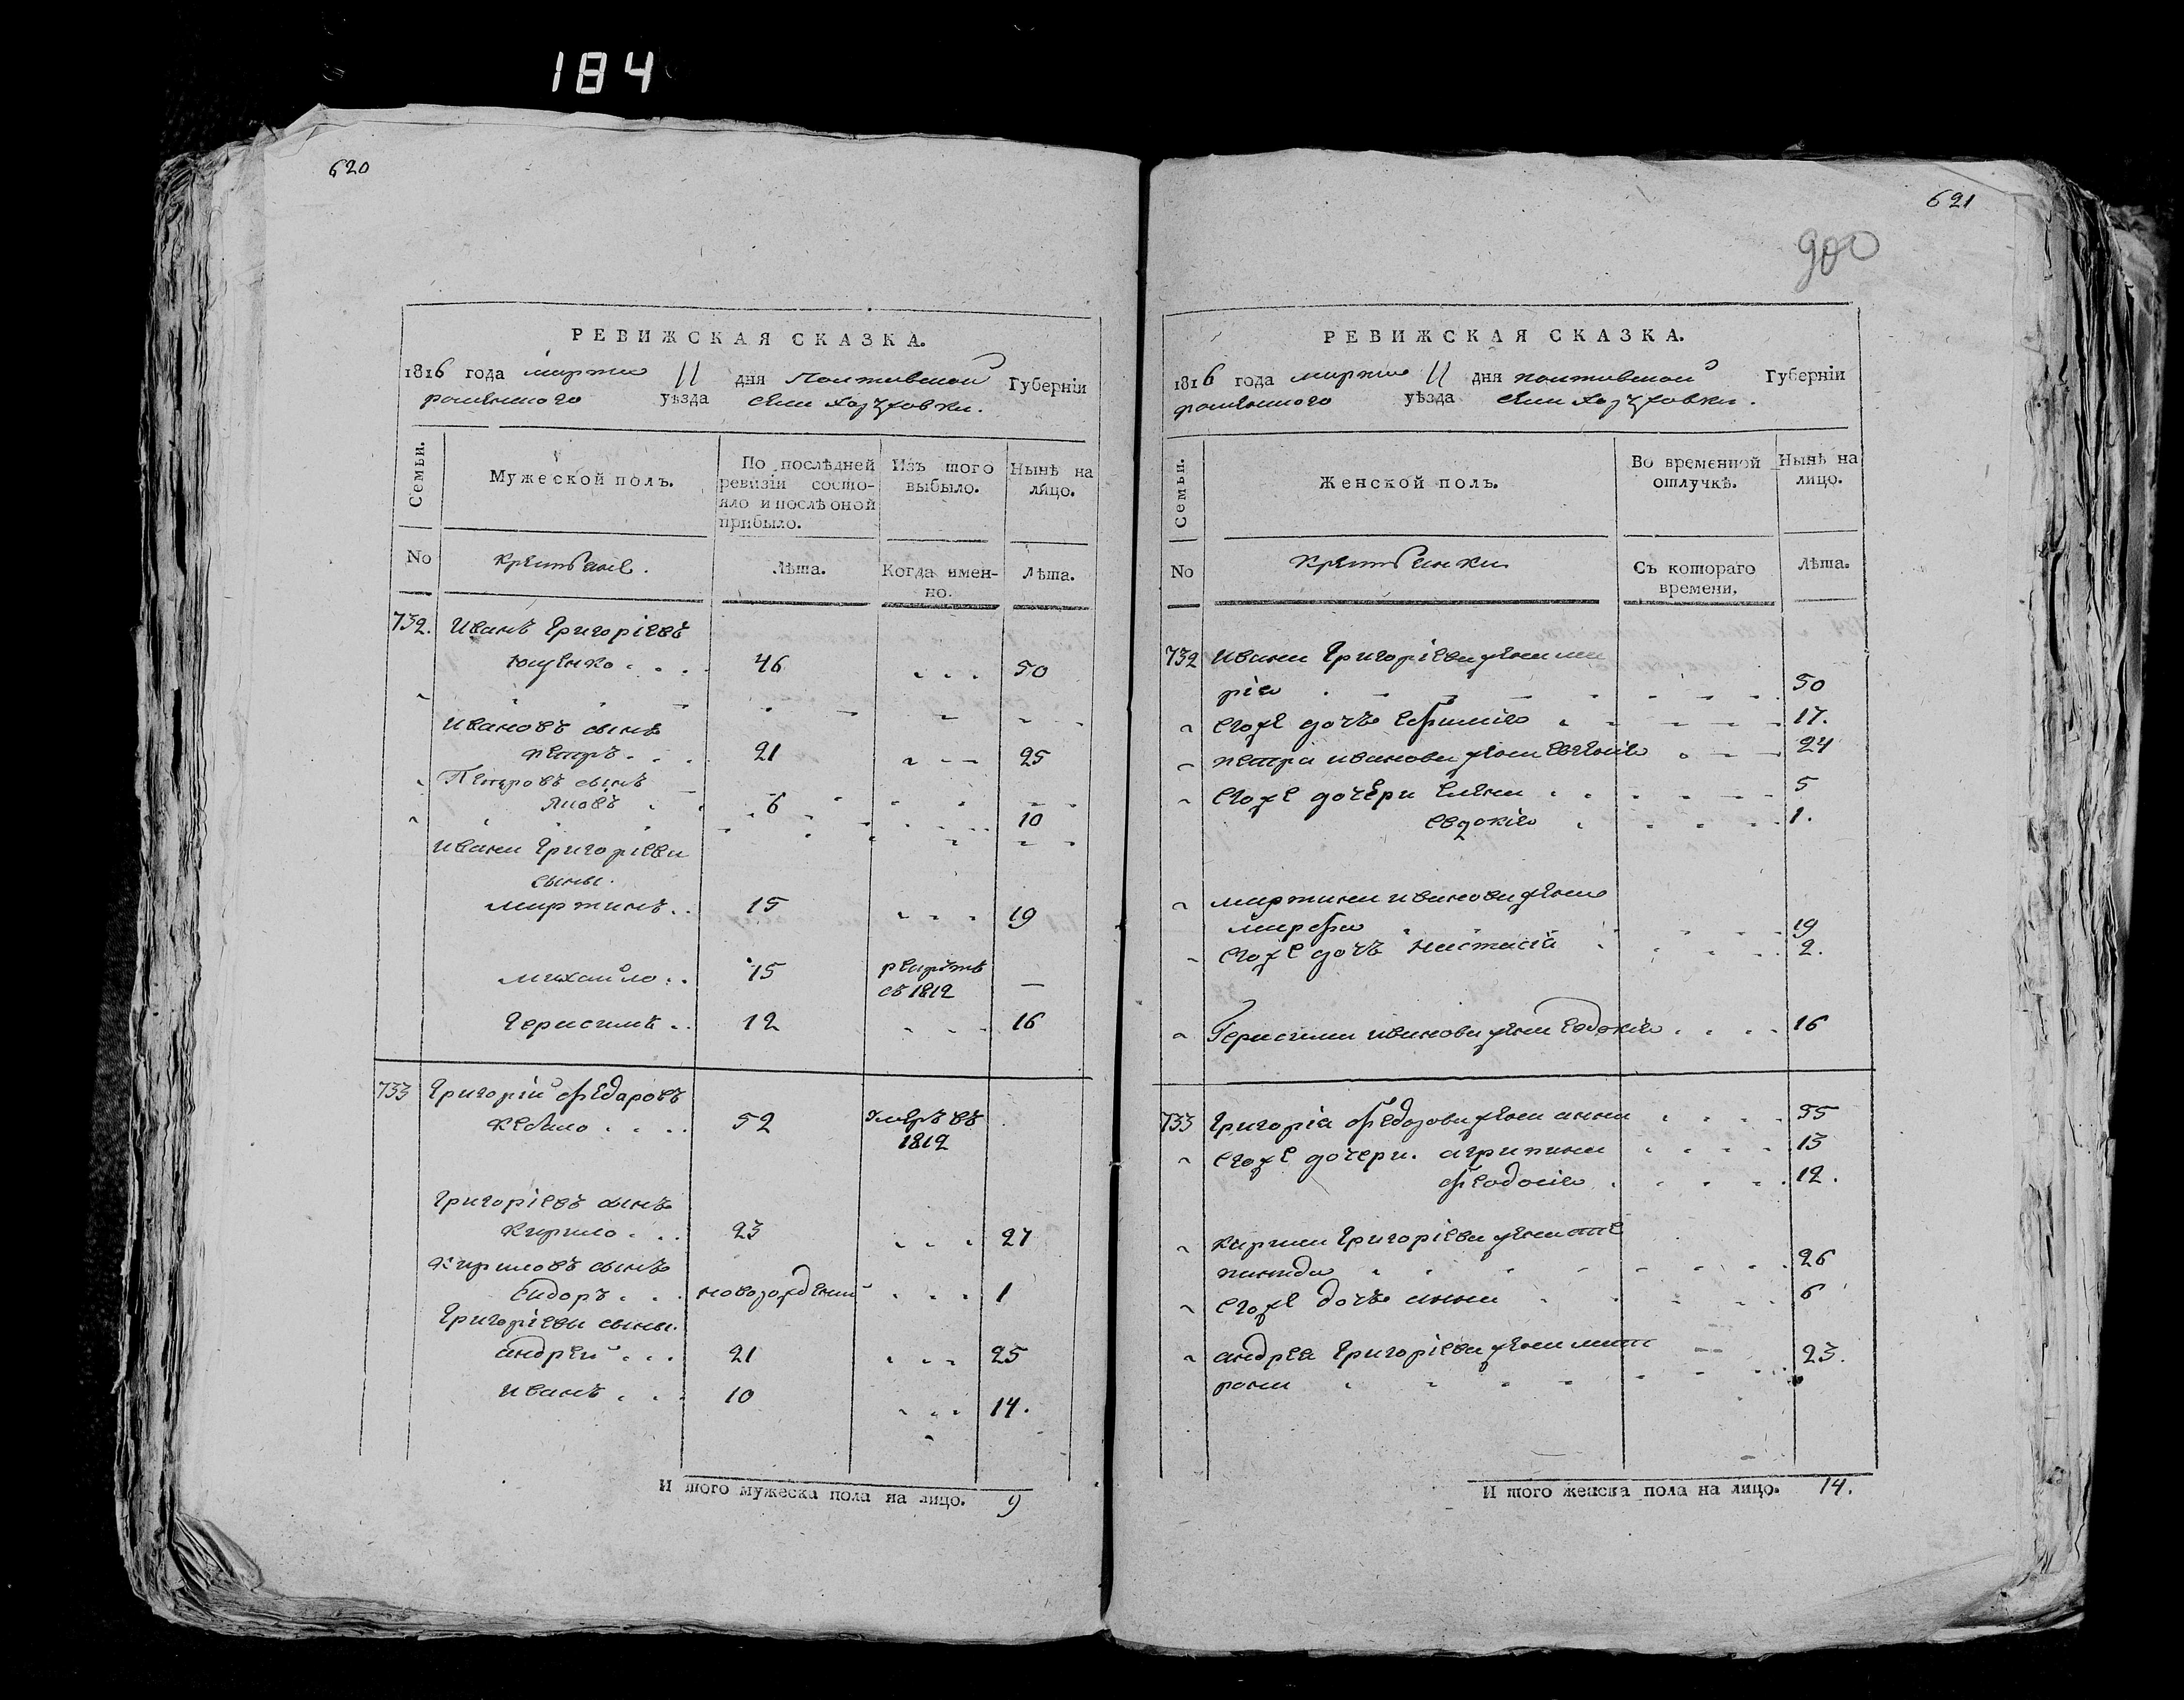 184
620
РЕВИЖСКАЯ СКАЗКА.
1816 года марта 11 дня Полтавской Губерніи
роменского уѣзда села
Семьи. Мужеской полъ. По послѣдней ревизіи состояло и послѣ оной прибыло. Изъ того выбыло. Нынѣ на лицо.
No крестьяне. Лѣта. Когда именно. Лѣта.
732. Иванъ Григоріевъ
Ющенко . . . . 46 . . . 50
Ивановъ сынъ
петръ . . . 21 25
Петровъ сынъ
Яковъ . . 6 10
Ивана Григоріева
сыны.
мартинъ . . 15 . . . 19
михайло . . 15 рекрутъ
съ 1812 —
Герасимъ . . 12 . . . 16
733 Григорій Федаровъ
. . . . 52 умеръ въ
1812
Григоріевъ сынъ
Кирило . . . 23 . . . 27
Кириловъ сынъ
Сидоръ . . . новорожденый . . . 1
Григоріевы сыны.
андрей . . . 21 . . . 25
Иванъ . . . 10 . . . 14.
И того мужеска пола на лицо. 9
621
900
РЕВИЖСКАЯ СКАЗКА.
1816 года марта 11 дня полтавской Губерніи
роменского уѣзда села
Семьи. Женской полъ. Во временной отлучкѣ. Нынѣ на лицо.
No Крестьянки Съ котораго времени. Лѣта.
732 Ивана Григоріева жена ма
рія 50
егоже дочь Ефимія 17.
петра иванова жена Евгенія 24
егоже дочери Елена 5
Евдокія 1.
мартина иванова жена
марфа 19
егоже дочь Настасія 2.
Герасима иванова жена Евдокія . . . . 16
733 Григорія Федорова жена анна . . . . 55
егоже дочери. агрипина . . . . 13
Феодосія . . . . 12.
Кирила Григоріева жена сте
панида 26
егоже дочь анна 6
андрея Григоріева жена мат
рона 23.
И того женска пола на лицо. 14.